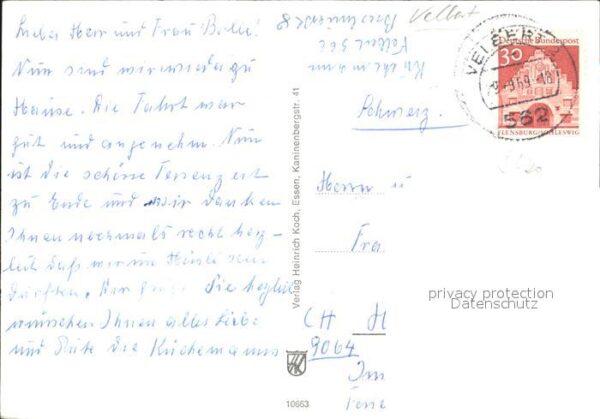 Liebe Herr und Frau Bolli!
Nun sind wir wieder zu
Hause. Die Fahrt war
gut und angenehm. Nun
ist die schöne Ferienzeit
zu Ende und wir danken
Ihnen nochmals recht herz-
lich daß wir im Häusli sein
durften. Sie herzlich
wünschen Ihnen alles Liebe
und Gute die Küchemanns
Velbert
Küchemann
Velbert 562
Schweiz.
Herrn u
Fra
CH H
9064
Im
VELBERT
-9.-9.69-18
562
Deutsche Bundespost
30
FLENSBURG/SCHLESWIG
Verlag Heinrich Koch, Essen, Kaninenbergstr. 41
HK
10663
privacy protection
Datenschutz